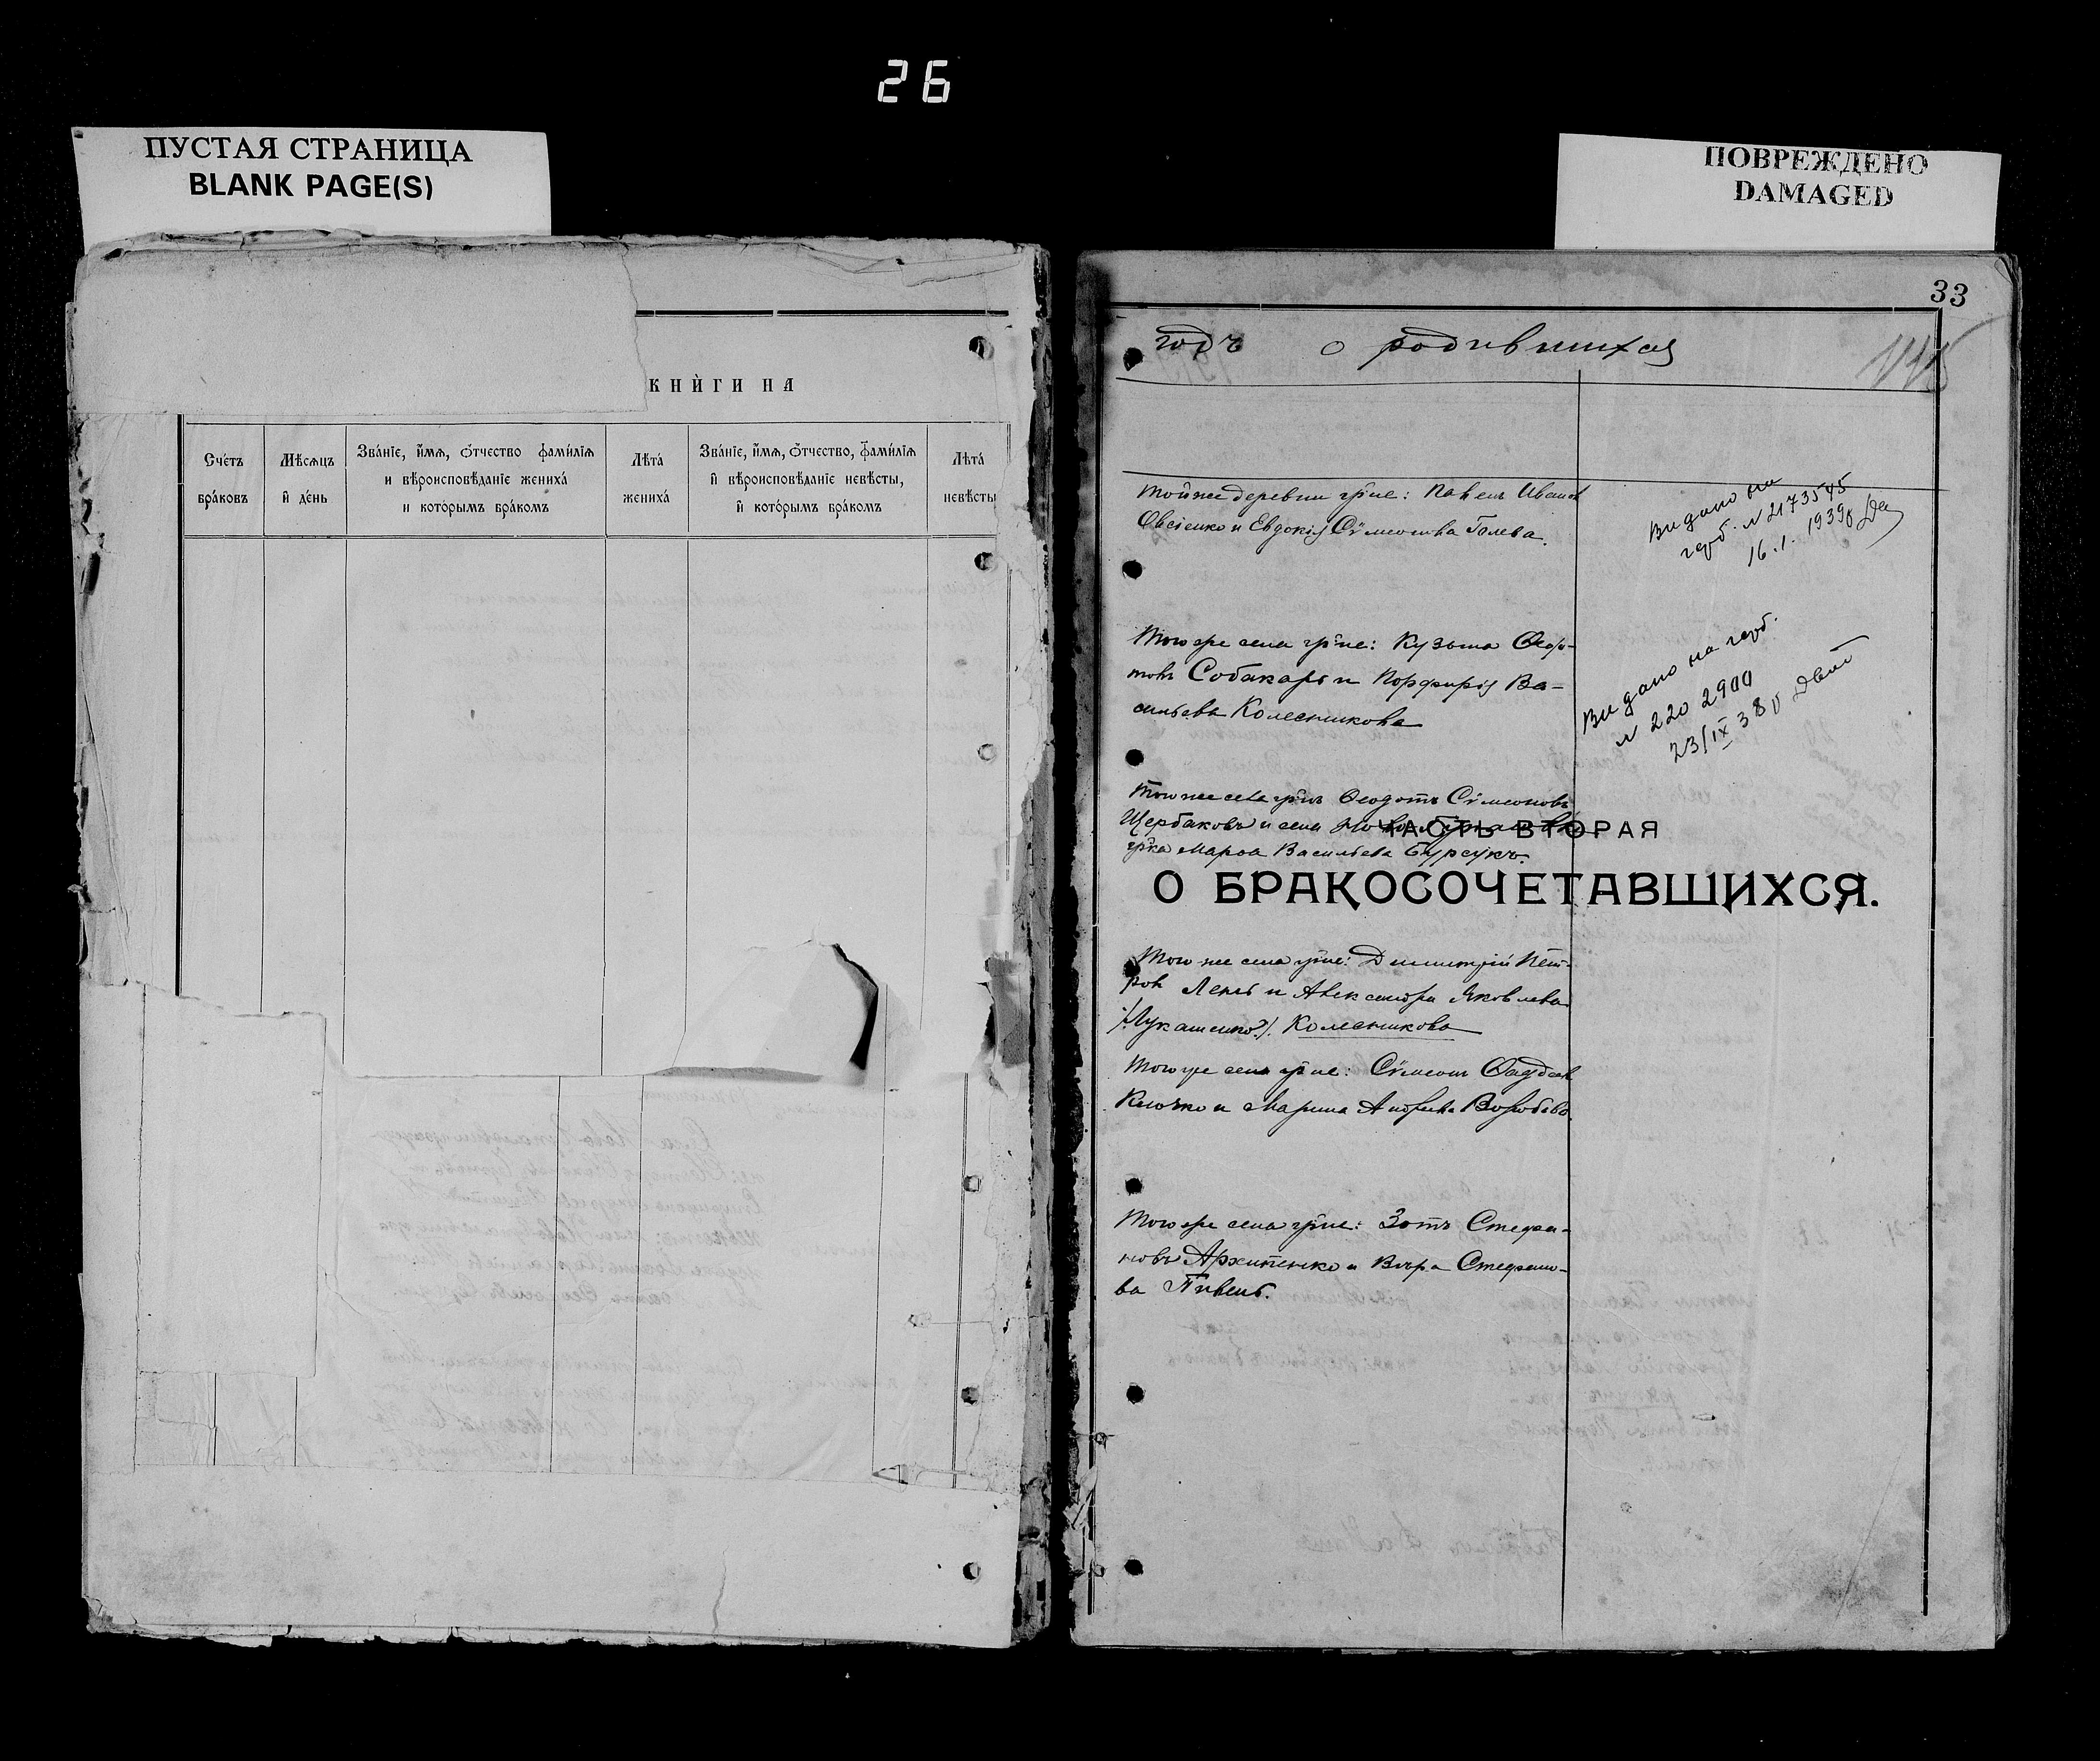 26
ПУСТАЯ СТРАНИЦА
BLANK PAGE(S)
ПОВРЕЖДЕНО
DAMAGED
КНИ́ГИ НА
Сче́тъ
бра́ковъ
Мѣ́сяцъ
и҆ де́нь
Зва́нїе, и҆́мѧ, ѻ҆́тчество фами́лїѧ
и вѣроисповѣ́данїе жениха́
и кото́рымъ бра́комъ
Лѣта́
жениха́
Зва́нїе, и҆́мѧ, ѻ҆́тчество, фами́лїѧ
и҆ вѣроисповѣ́данїе невѣ́сты,
и҆ кото́рымъ бра́комъ
Лѣта́
невѣ́сты
33
годъ о родившихся
Той же деревни гр̃не: Павелъ Иванов
Овсіенко и Евдокія Сѵмеонова Голева.
Видано на
герб. № 2173545
16.1. 1939р
Того же села гр̃не: Кузьма Ѳедо-
товъ Собакарь и Порфирія Ва-
сильева Колесникова
Видано на герб.
№ 220 2900
23/IX 38р
Того же села гр̃нъ Ѳеодотъ Сѵмеоновъ
Щербаковъ и села
ЧАСТЬ ВТОРАЯ
гр̃ка Марѳа Васильева Бурсукъ.
О БРАКОСОЧЕТАВШИХСЯ.
Того же села гр̃не: Димитрій Пет-
ров Лень и Александра Яковлева
/Лукашенко?/. Колесникова
Того же села гр̃не: Сѵмеонъ Фаддеев
Клочко и Марина Андреева Воробьева
Того же села гр̃не: Зотъ Стефа-
новъ Архипенко и Вѣра Стефано-
ва Пивень.